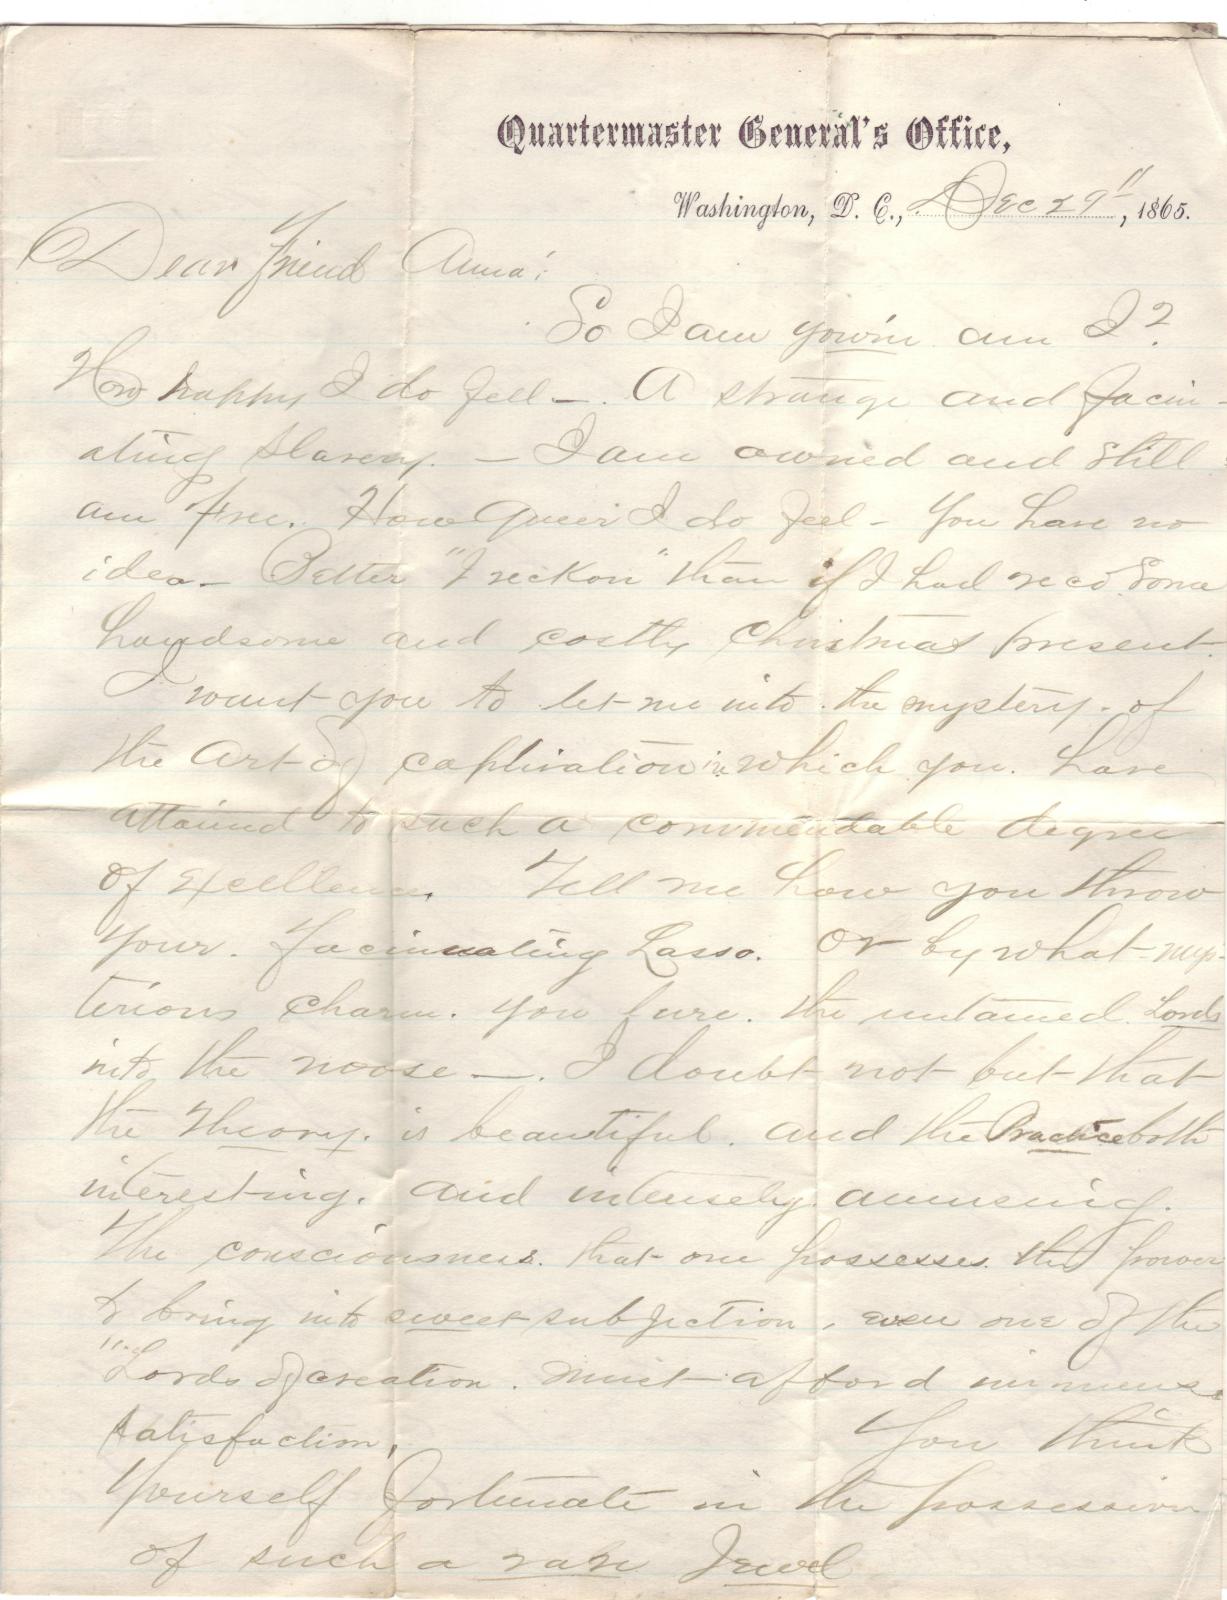 Quartermaster General's Office,
Washington, D. C., Dec 29", 1865.
Dear friend Anna:
So I am yowrn am I?
How happy I do fell —. A strange and facin-
ating slavery. — I am owned and still
am free. How queer I do feel - You have no
idea — Better "I reckon" than if I had recd some
handsome and costly Christmas present.
I want you to let me into the mystery of
the Art of captivation in which you have
attained to such a commendable degree
of Excellence. Tell me how you throw
your facinnating Lasso. Or by what mys-
terious charm. you lure. the untamed Lords
into the noose —. I doubt not but that
the Theory. is beautiful. and the Practice both
interesting. and intensely amuseing.
The consciousness. that one possesses the power
to bring into sweet subjection, even one of the
"Lords of creation. Must afford immense
satisfaction, You think
yourself fortunate in the possession
of such a rare Jewel